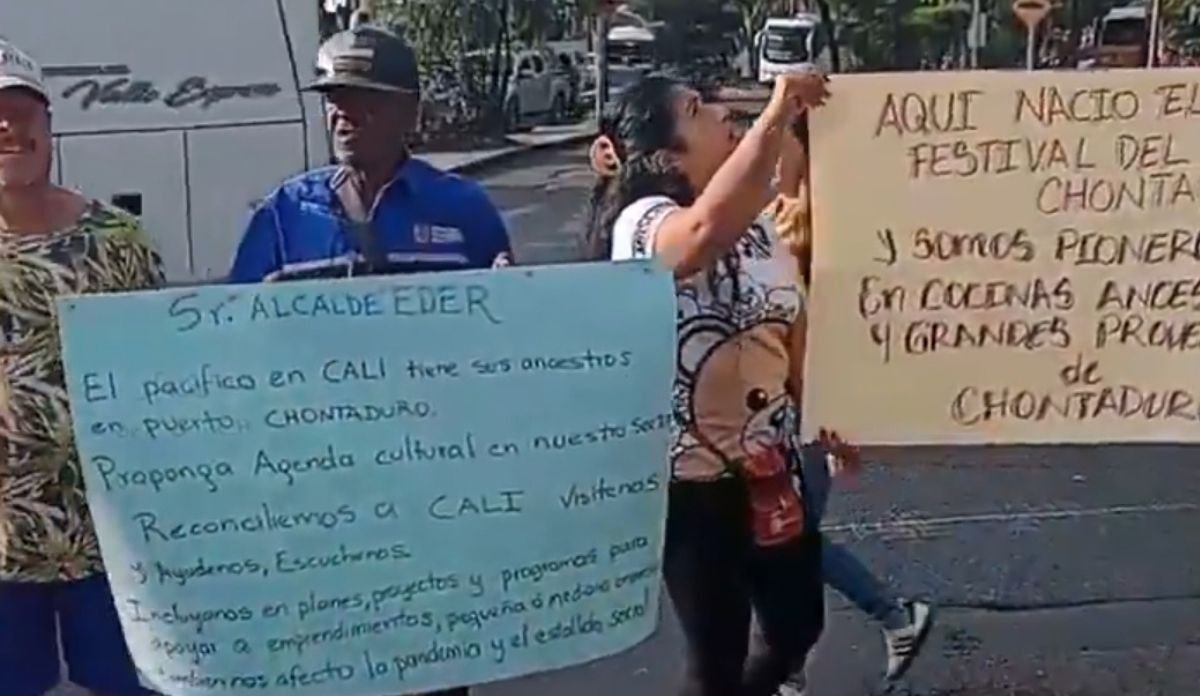 Valle Express
Sr. ALCALDE EDER
El pacífico en CALI tiene sus ancestros
en puerto CHONTADURO.
Proponga Agenda cultural en nuestro
Reconciliemos a CALI Visítenos
y Ayudenos, Escuchenos.
Incluyanos en planes, proyectos y programas para
apoyar a emprendimientos, pequeña ó
nos afecto la pandemia y el estallido social
AQUI NACIO E
FESTIVAL DEL
CHONTA
y somos PIONER
En COCINAS ANCES
y GRANDES PROVE
de
CHONTADUR